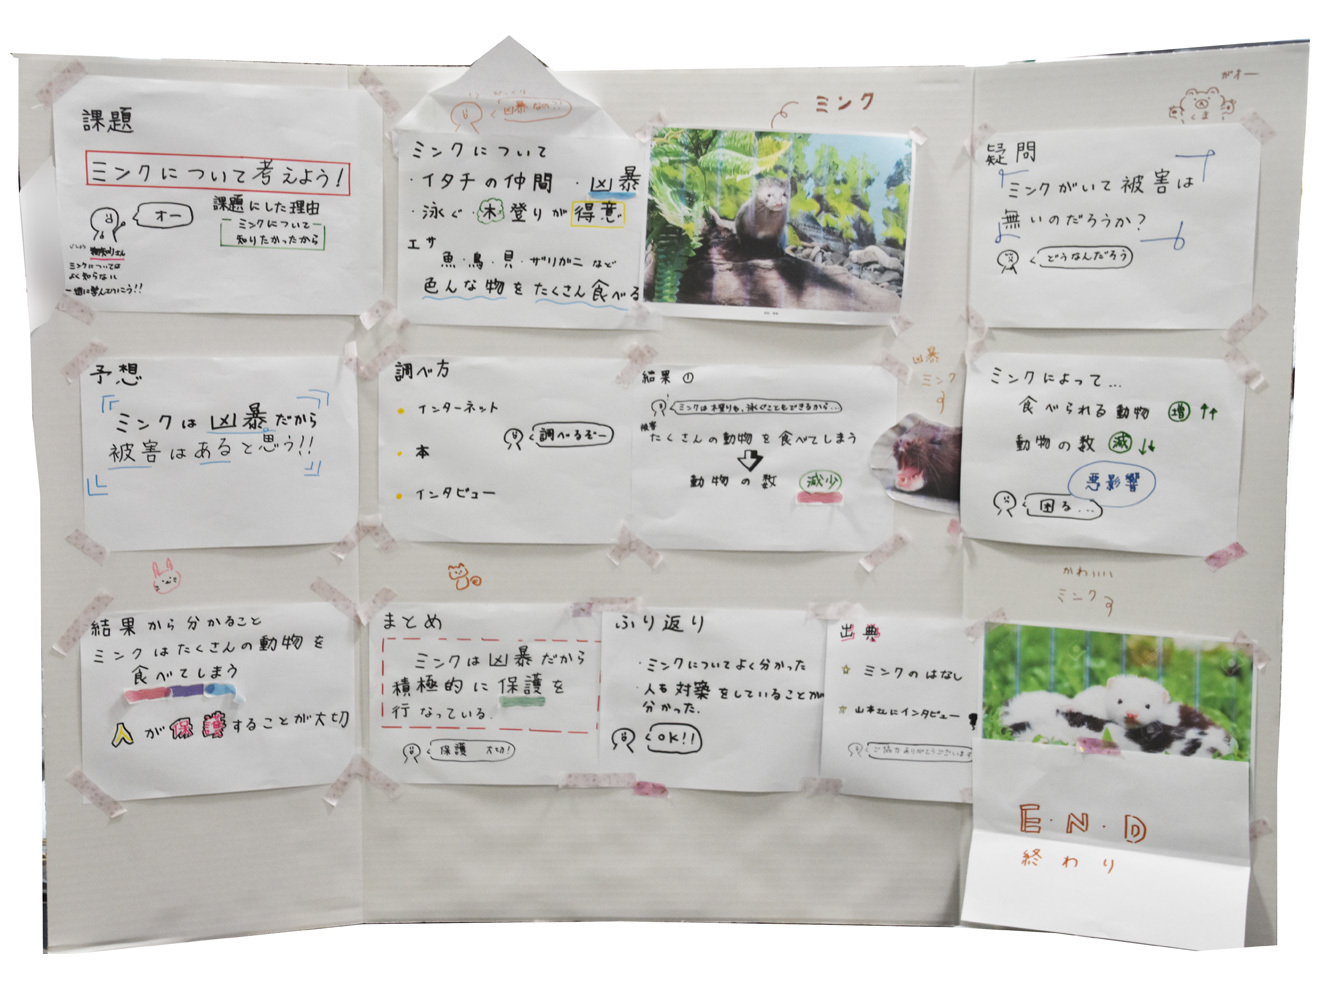 課題
ミンクについて考えよう!
オー
課題にした理由
ミンクについて
知りたかったから
ミンクについては
よく知らない
一緒に学んでいこう!!
凶暴なの?!
ミンクについて
・イタチの仲間 ・凶暴
・泳ぐ・木登りが得意
エサ
魚・鳥・貝・ザリガニなど
色んな物をたくさん食べる
ミンク
がオー
くま
疑問
ミンクがいて被害は
無いのだろうか?
どうなんだろう
予想
ミンクは凶暴だから
被害はあると思う!!
調べ方
・インターネット
・本
・インタビュー
調べるぞー
結果①
ミンクは木登りも、泳ぐこともできるから…
被害
たくさんの動物を食べてしまう
動物の数 減少
凶暴
ミンク
ミンクによって…
食べられる動物 増↑↑
動物の数 減↓↓
悪影響
困る…
結果から分かること
ミンクはたくさんの動物を
食べてしまう
人が保護することが大切
まとめ
ミンクは凶暴だから
積極的に保護を
行なっている.
保護 大切!
ふり返り
・ミンクについてよく分かった
・人も対築をしていることが
分かった.
OK!!
出典
☆ ミンクのはなし
☆ 山本さんにインタビュー
ご協力ありがとうございます
かわいい
ミンク
E・N・D
終わり